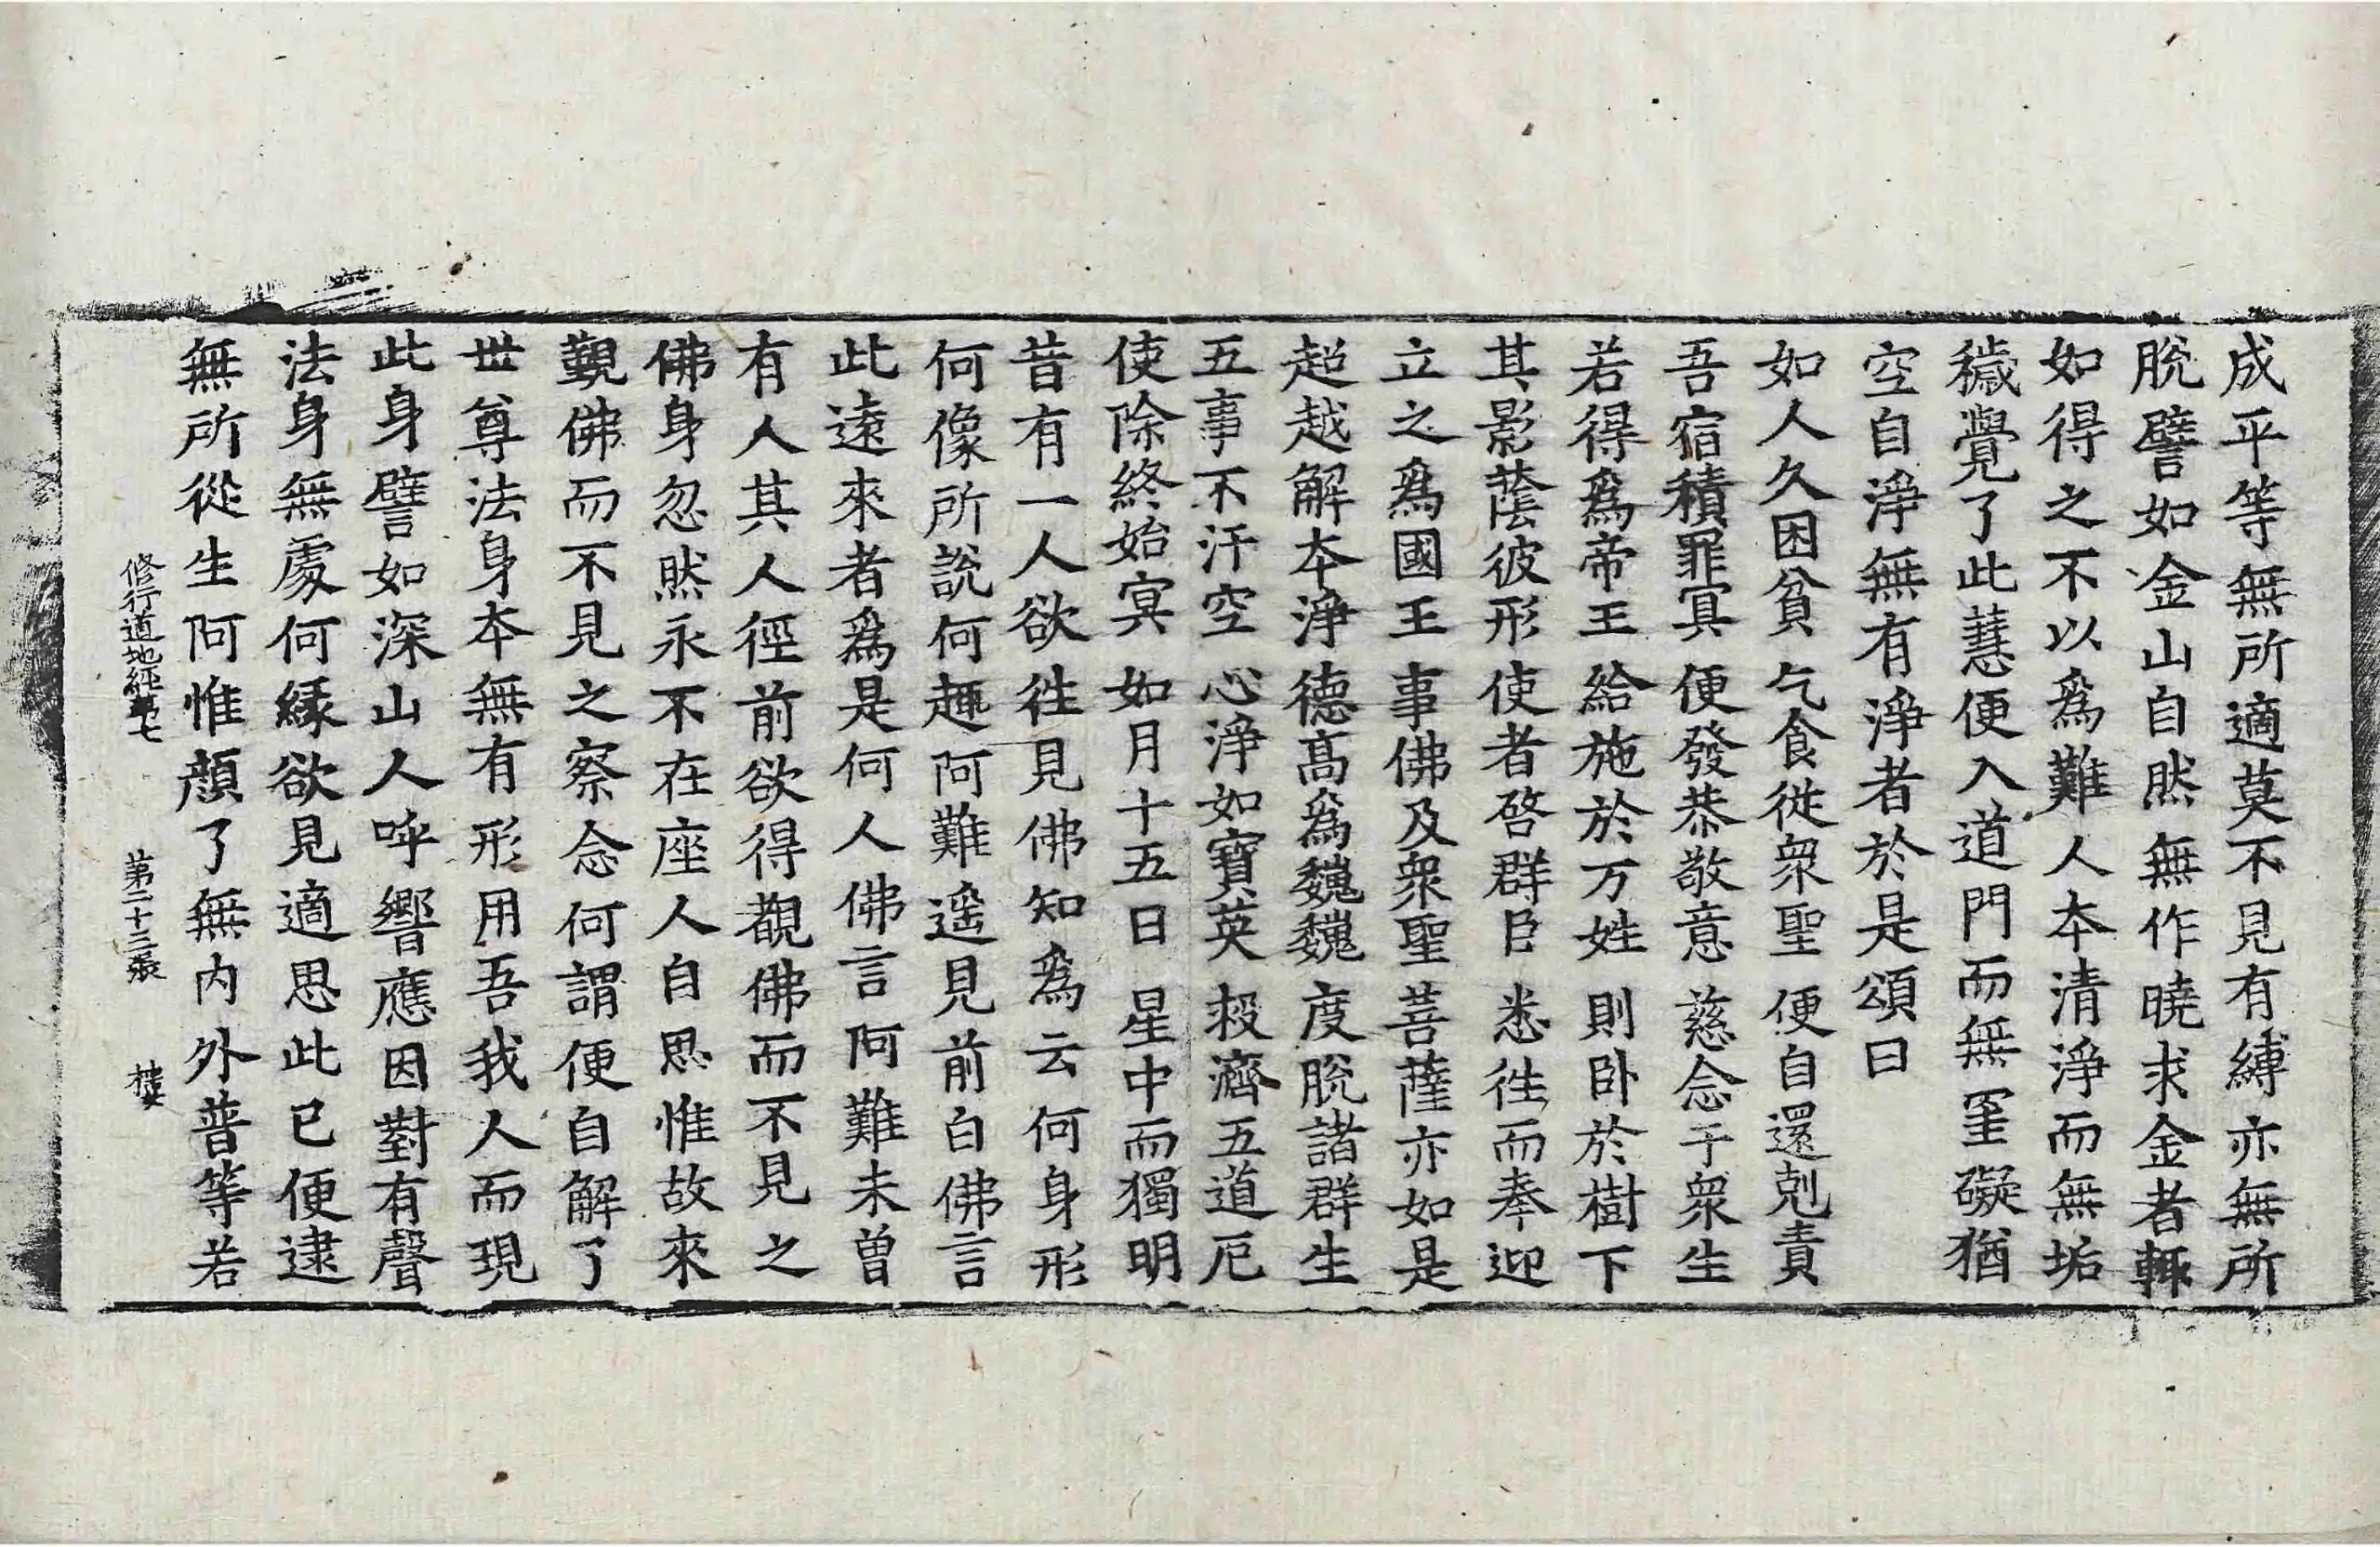 成平等無所適莫不見有縛亦無所
脫譬如金山自然無作曉求金者輙
如得之不以爲難人本清淨而無垢
穢覺了此慧便入道門而無罣礙猶
空自淨無有淨者於是頌曰
如人久困貧 乞食從衆聖 便自還剋責
吾宿積罪冥 便發恭敬意 慈念于衆生
若得爲帝王 給施於万姓 則卧於樹下
其影蔭彼形 使者啓群臣 悉往而奉迎
立之爲國王 事佛及衆聖 菩薩亦如是
超越解本淨 德髙爲魏魏 度脫諸群生
五事不汙空 心淨如寶英 救濟五道厄
使除終始冥 如月十五日 星中而獨明
昔有一人欲往見佛知爲云何身形
何像所說何趣阿難遥見前白佛言
此遠來者爲是何人佛言阿難未曽
有人其人徑前欲得覩佛而不見之
佛身忽然永不在座人自思惟故來
覲佛而不見之察念何謂便自解了
世尊法身本無有形用吾我人而現
此身譬如深山人呼響應因對有聲
法身無處何縁欲見適思此已便逮
無所從生阿惟顔了無内外普等若
修行道地經第七 第二十三張 樓